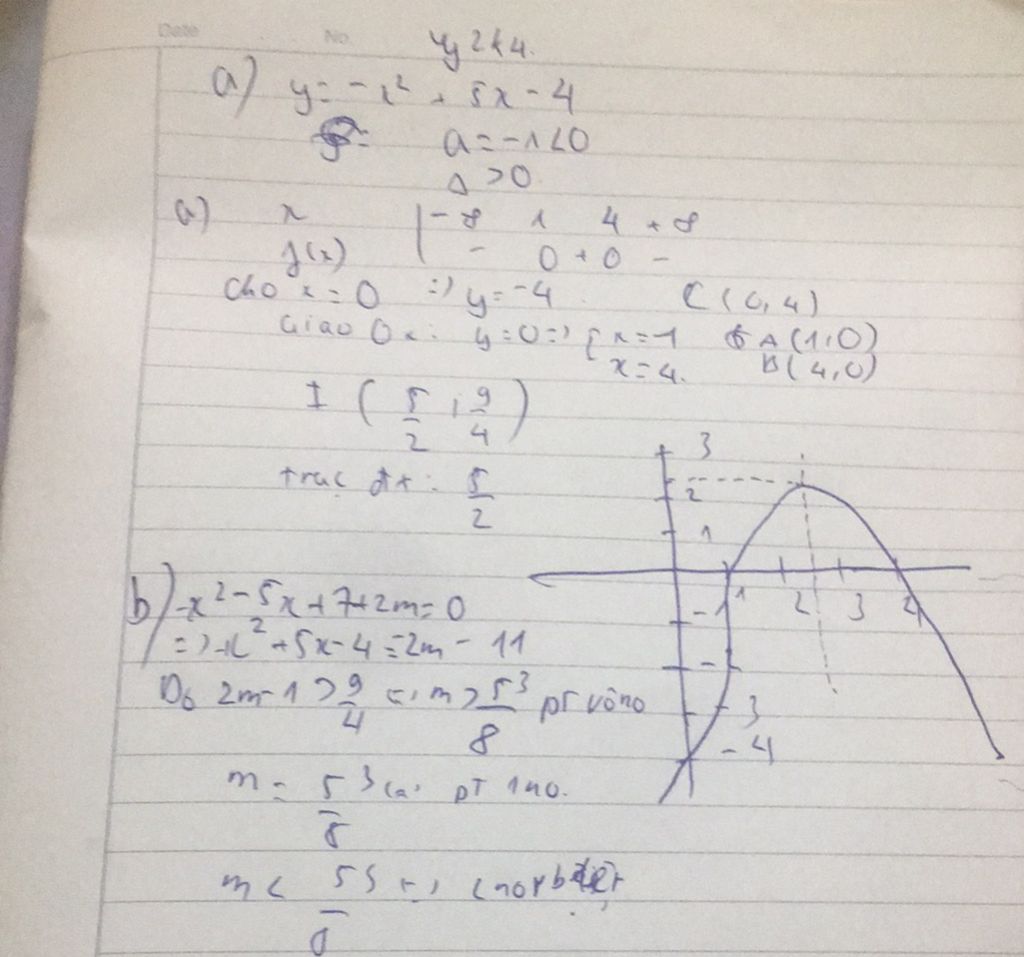 Date No
a) y = -x² + 5x - 4
a = -1 < 0
Δ > 0
a) x | -∞ 1 4 +∞
f(x) | - 0 + 0 -
Cho x = 0 => y = -4 C(0, 4)
Giao Ox: y = 0 => [ x = 1 A(1,0)
x = 4. B(4,0)
I ( 5/2 ; 9/4 )
trục đx: 5/2
3
2
1
1 2 3 4
-1
-
3
-4
b) -x² - 5x + 7 + 2m = 0
=> -x² + 5x - 4 = 2m - 11
2m - 1 > 9/4 m > 53/8 pt vô no
m = 53/8 pt 1 no.
m <